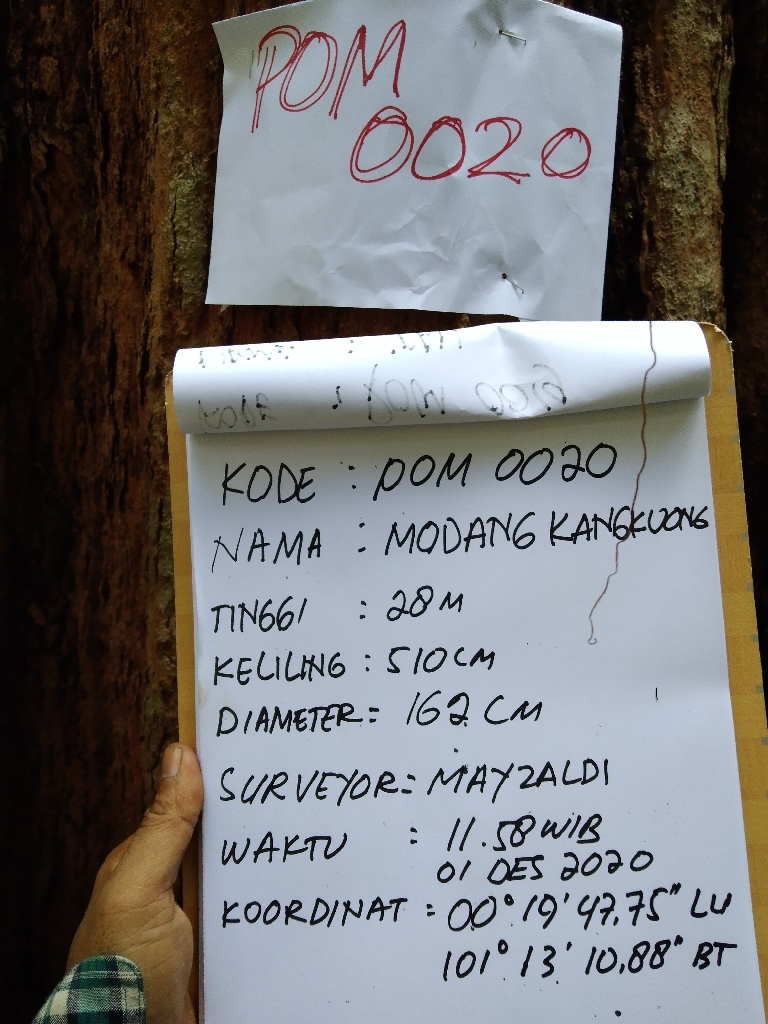 POM
0020
KODE : POM 0020
NAMA : MODANG KANGKUONG
TINGGI : 28 M
KELILING : 510 CM
DIAMETER = 162 CM
SURVEYOR = MAYZALDI
WAKTU : 11.58 WIB
01 DES 2020
KOORDINAT = 00° 19' 47,75" LU
101° 13' 10,88" BT